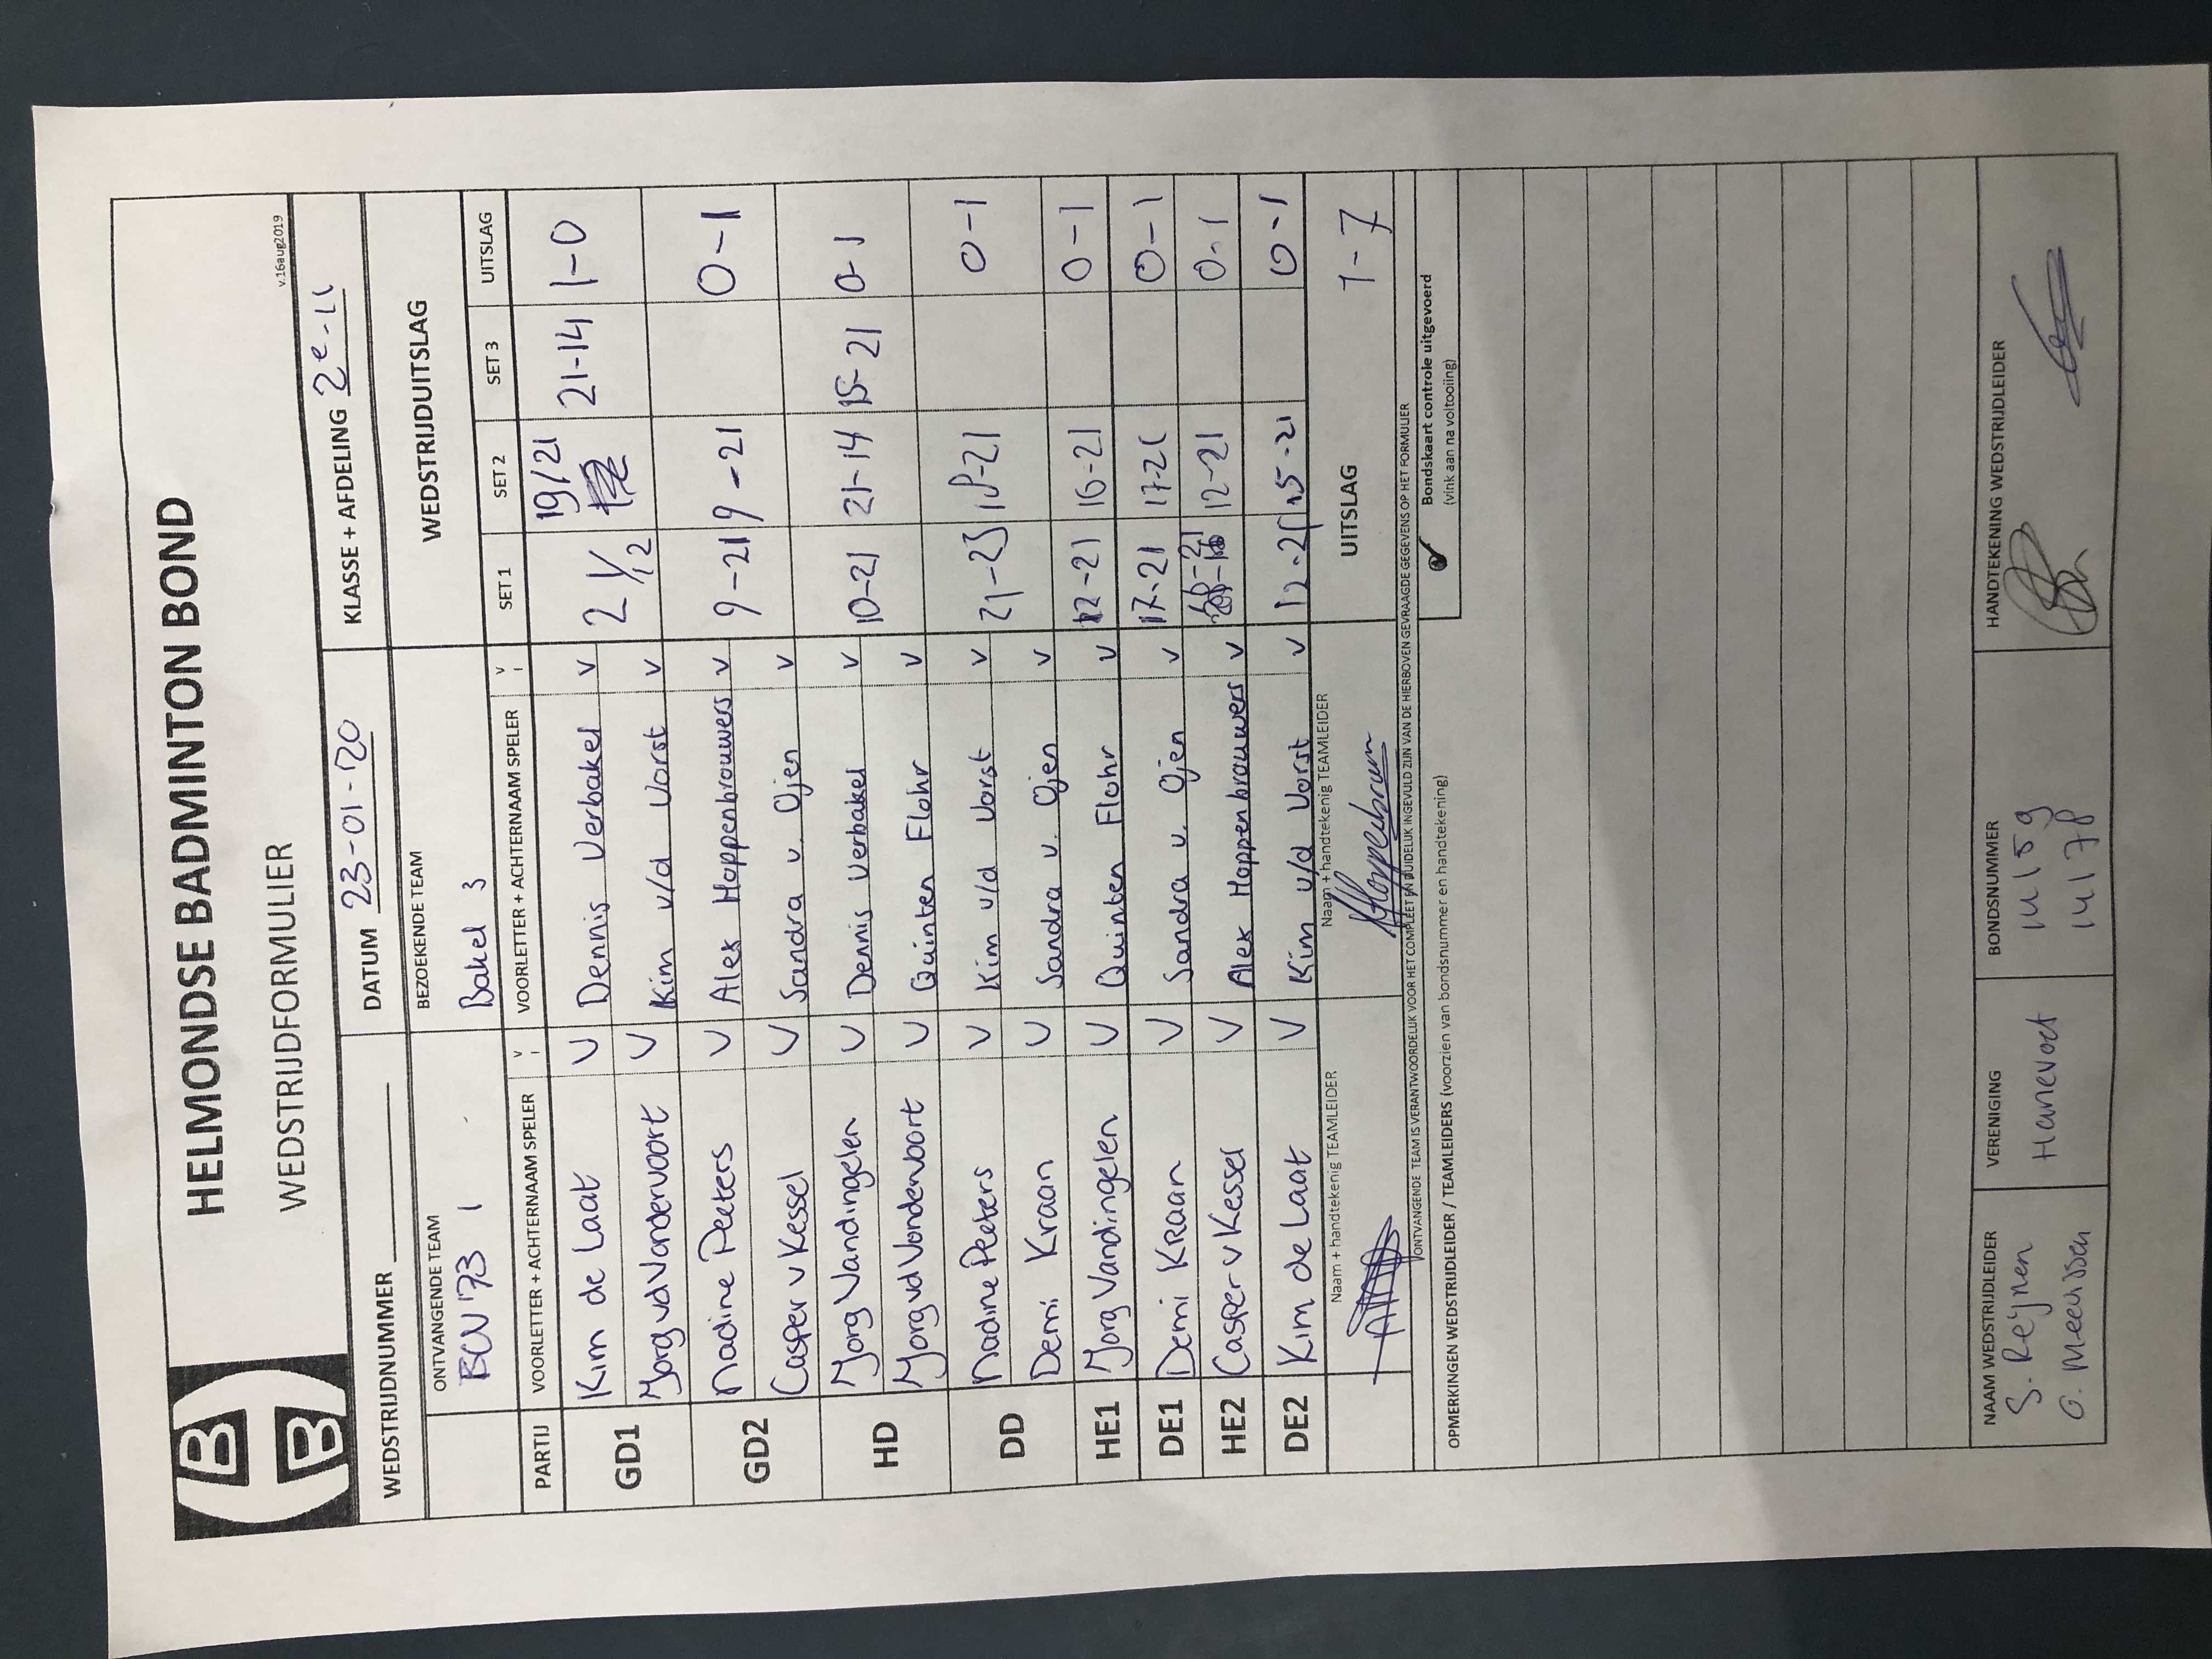 HELMONDSE BADMINTON BOND
WEDSTRIJDFORMULIER
v.16aug2019
WEDSTRIJDNUMMER
DATUM 23-01-20
KLASSE + AFDELING 2e-
ONTVANGENDE TEAM
BEZOEKENDE TEAM
WEDSTRIJDUITSLAG
BCV'73 1
Bakel 3
PARTIJ VOORLETTER + ACHTERNAAM SPELER V VOORLETTER + ACHTERNAAM SPELER V SET 1 SET 2 SET 3 UITSLAG
GD1 Kim de Laat V Dennis Verbakel v 21/12 19/21 21-14 1-0
Jorg vd Vondervoort V Kim v/d Vorst v
GD2 Nadine Peeters V Alex Hoppenbrouwers v 9-21 9-21 0-1
Casper v Kessel V Sandra v. Ojen v
HD Jorg Vandingelen V Dennis Verbakel v 10-21 21-14 15-21 0-1
Jorg vd Vondervoort V Quinten Flohr v
DD Nadine Peeters V Kim v/d Vorst v 21-23 18-21 0-1
Demi Kraan V Sandra v. Ojen v
HE1 Jorg Vandingelen V Quinten Flohr v 12-21 16-21 0-1
DE1 Demi Kraan V Sandra v. Ojen v 17-21 17-21 0-1
HE2 Casper v Kessel V Alex Hoppenbrouwers v 12-21 0-1
DE2 Kim de Laat V Kim v/d Vorst v 12-21 15-21 0-1
Naam + handtekenig TEAMLEIDER
Naam + handtekenig TEAMLEIDER
UITSLAG 1-7
ONTVANGENDE TEAM IS VERANTWOORDELIJK VOOR HET COMPLEET EN DUIDELIJK INGEVULD ZIJN VAN DE HIERBOVEN GEVRAAGDE GEGEVENS OP HET FORMULIER
OPMERKINGEN WEDSTRIJDLEIDER / TEAMLEIDERS (voorzien van bondsnummer en handtekening)
Bondskaart controle uitgevoerd
(vink aan na voltooiing)
NAAM WEDSTRIJDLEIDER VERENIGING BONDSNUMMER HANDTEKENING WEDSTRIJDLEIDER
S. Reijnen Hanevoet
G. Meeussen